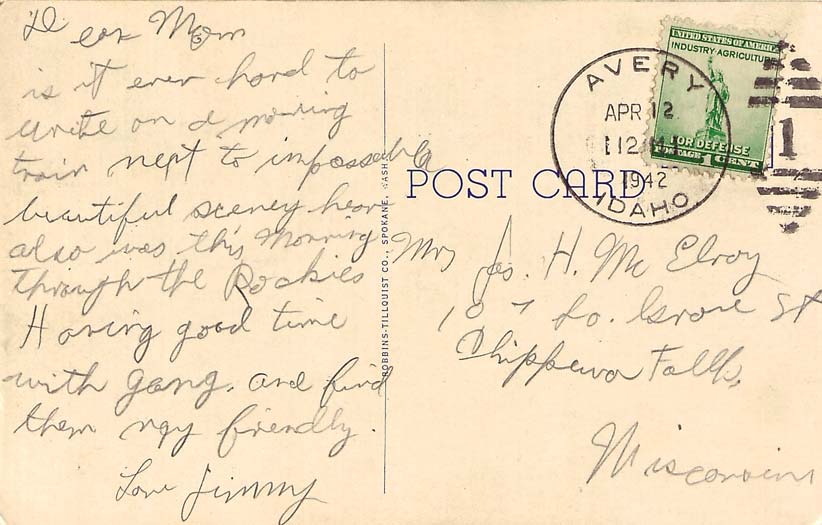 Dear Mom
is it ever hard to
write on a moving
train nept to impossible
beautiful sceney hear
also was this Morning
through the Rockies
Having good time
with gang. and find
them vry friendly.
Love Jimmy
ROBBINS-TILLQUIST CO., SPOKANE, WASH.
POST CARD
AVERY
APR 12
1942
IDAHO
UNITED STATES OF AMERICA
INDUSTRY AGRICULTURE
FOR DEFENSE
POSTAGE 1 CENT
1
Mrs Jos. H. Mc Elroy
107 So. Grove St
Chippewa Falls,
Wisconsin